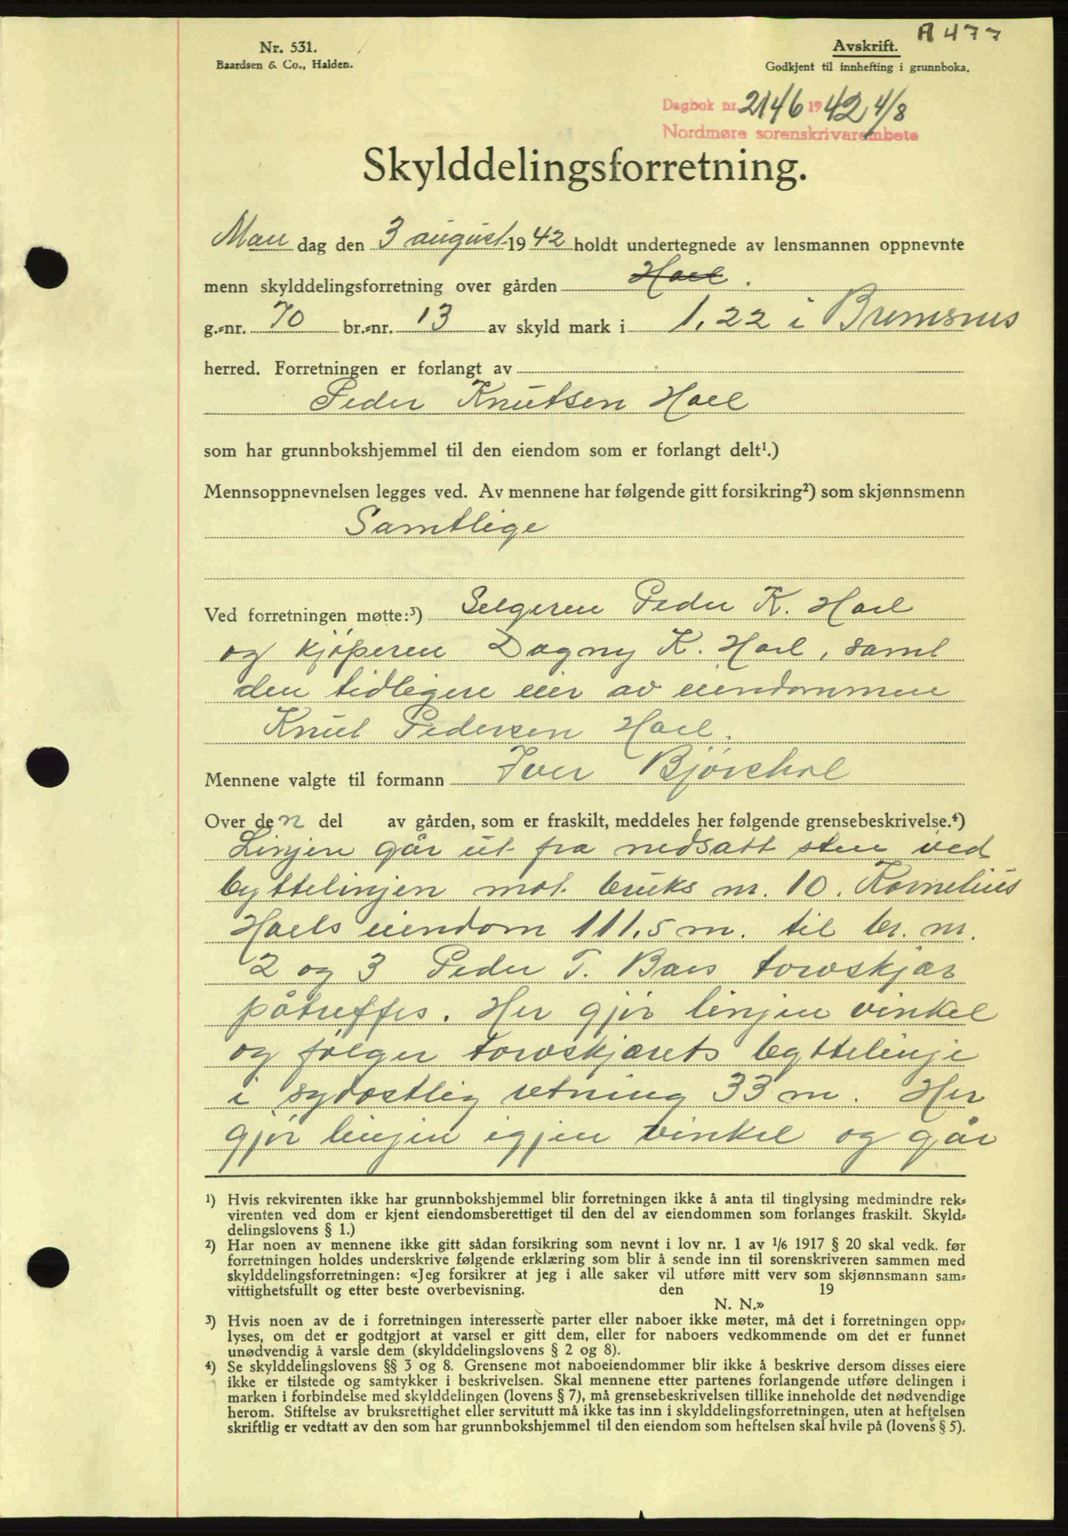 A 477
Nr. 531.
Baardsen & Co., Halden.
Avskrift.
Godkjent til innhefting i grunnboka.
Dagbok nr. 2146 1942 4/8
Nordmøre sorenskrivarembete
Skylddelingsforretning.
Man dag den 3 august 1942 holdt undertegnede av lensmannen oppnevnte
menn skylddelingsforretning over gården Hoel.
g.-nr. 70 br.-nr. 13 av skyld mark i 1,22 i Bremsnes
herred. Forretningen er forlangt av
Peder Knutsen Hoel
som har grunnbokshjemmel til den eiendom som er forlangt delt¹.)
Mennsoppnevnelsen legges ved. Av mennene har følgende gitt forsikring²) som skjønnsmenn
Samtlige
Ved forretningen møtte:³) Selgeren Peder K. Hoel
og kjøperen Dagny K. Hoel, samt
den tidligere eier av eiendommen
Knut Pedersen Hoel.
Mennene valgte til formann Iver
Over den del av gården, som er fraskilt, meddeles her følgende grensebeskrivelse.⁴)
Linjen går ut fra nedsatt sten ved
byttelinjen mot bruks nr. 10. Kornelius
Hoels eiendom 111,5 m. til br. nr.
2 og 3 Peder T. torvskjær
påtreffes. Her gjør linjen vinkel
og følger torvskjærets byttelinje
i sydøstlig retning 33 m. Her
gjør linjen igjen vinkel og går
¹) Hvis rekvirenten ikke har grunnbokshjemmel blir forretningen ikke å anta til tinglysing medmindre rek-
virenten ved dom er kjent eiendomsberettiget til den del av eiendommen som forlanges fraskilt. Skyld-
delingslovens § 1.)
²) Har noen av mennene ikke gitt sådan forsikring som nevnt i lov nr. 1 av 1/6 1917 § 20 skal vedk. før
forretningen holdes underskrive følgende erklæring som blir å sende inn til sorenskriveren sammen med
skylddelingsforretningen: «Jeg forsikrer at jeg i alle saker vil utføre mitt verv som skjønnsmann sam-
vittighetsfullt og etter beste overbevisning. den 19
N. N.»
³) Hvis noen av de i forretningen interesserte parter eller naboer ikke møter, må det i forretningen opp-
lyses, om det er godtgjort at varsel er gitt dem, eller for naboers vedkommende om det er funnet
unødvendig å varsle dem (skylddelingslovens § 2 og 8).
⁴) Se skylddelingslovens §§ 3 og 8. Grensene mot naboeiendommer blir ikke å beskrive dersom disses eiere
ikke er tilstede og samtykker i beskrivelsen. Skal mennene etter partenes forlangende utføre delingen i
marken i forbindelse med skylddelingen (lovens § 7), må grensebeskrivelsen tillike inneholde det nødvendige
herom. Stiftelse av bruksrettighet eller servitutt må ikke tas inn i skylddelingsforretningen, uten at heftelsen
skriftlig er vedtatt av den som har grunnbokshjemmel til den eiendom som heftelsen skal hvile på (lovens § 5).